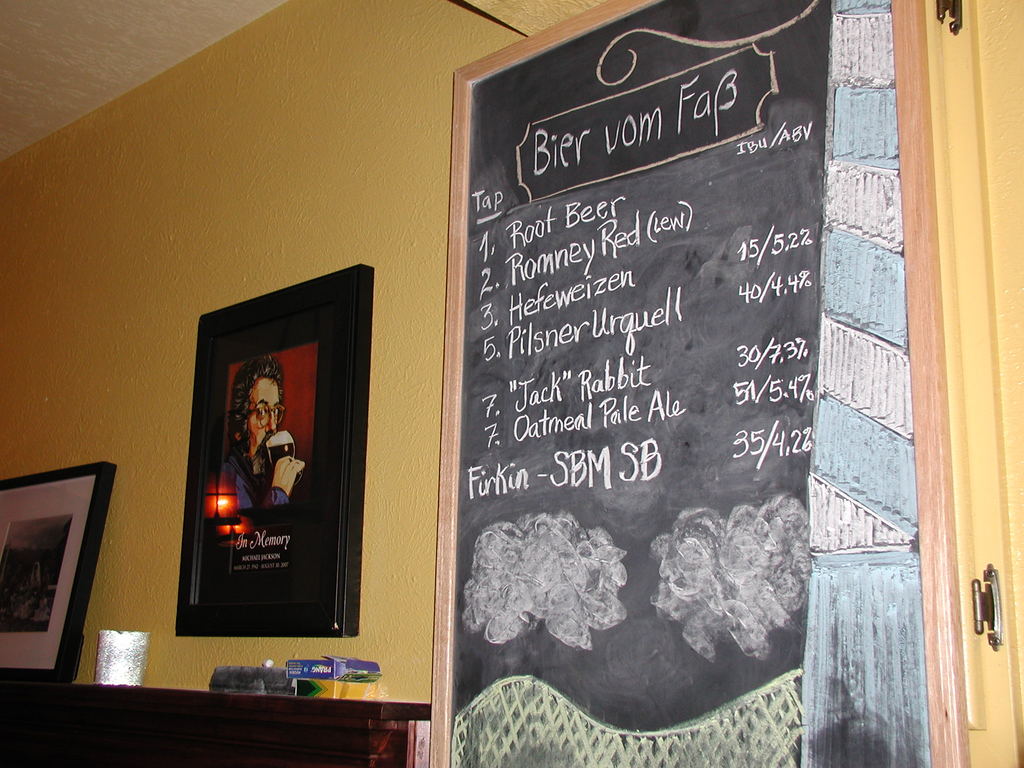 Bier vom Faß
IBU/ABV
Tap
1. Root Beer
2. Romney Red (LEW)
3. Hefeweizen 15/5.2%
5. Pilsner Urquell 40/4.4%
7. "Jack" Rabbit 30/7.3%
7. Oatmeal Pale Ale 51/5.4%
Firkin - SBM SB 35/4.2%
In Memory
MICHAEL JACKSON
MARCH 27, 1942 - AUGUST 30, 2007